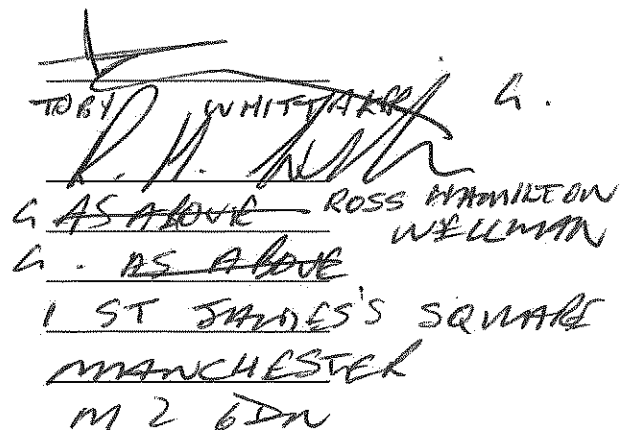 TOBY WHITTAKER G.
G AS ABOVE ROSS HAMILTON
WELLMAN
G. AS ABOVE
1 ST JAMES'S SQUARE
MANCHESTER
M2 6DN